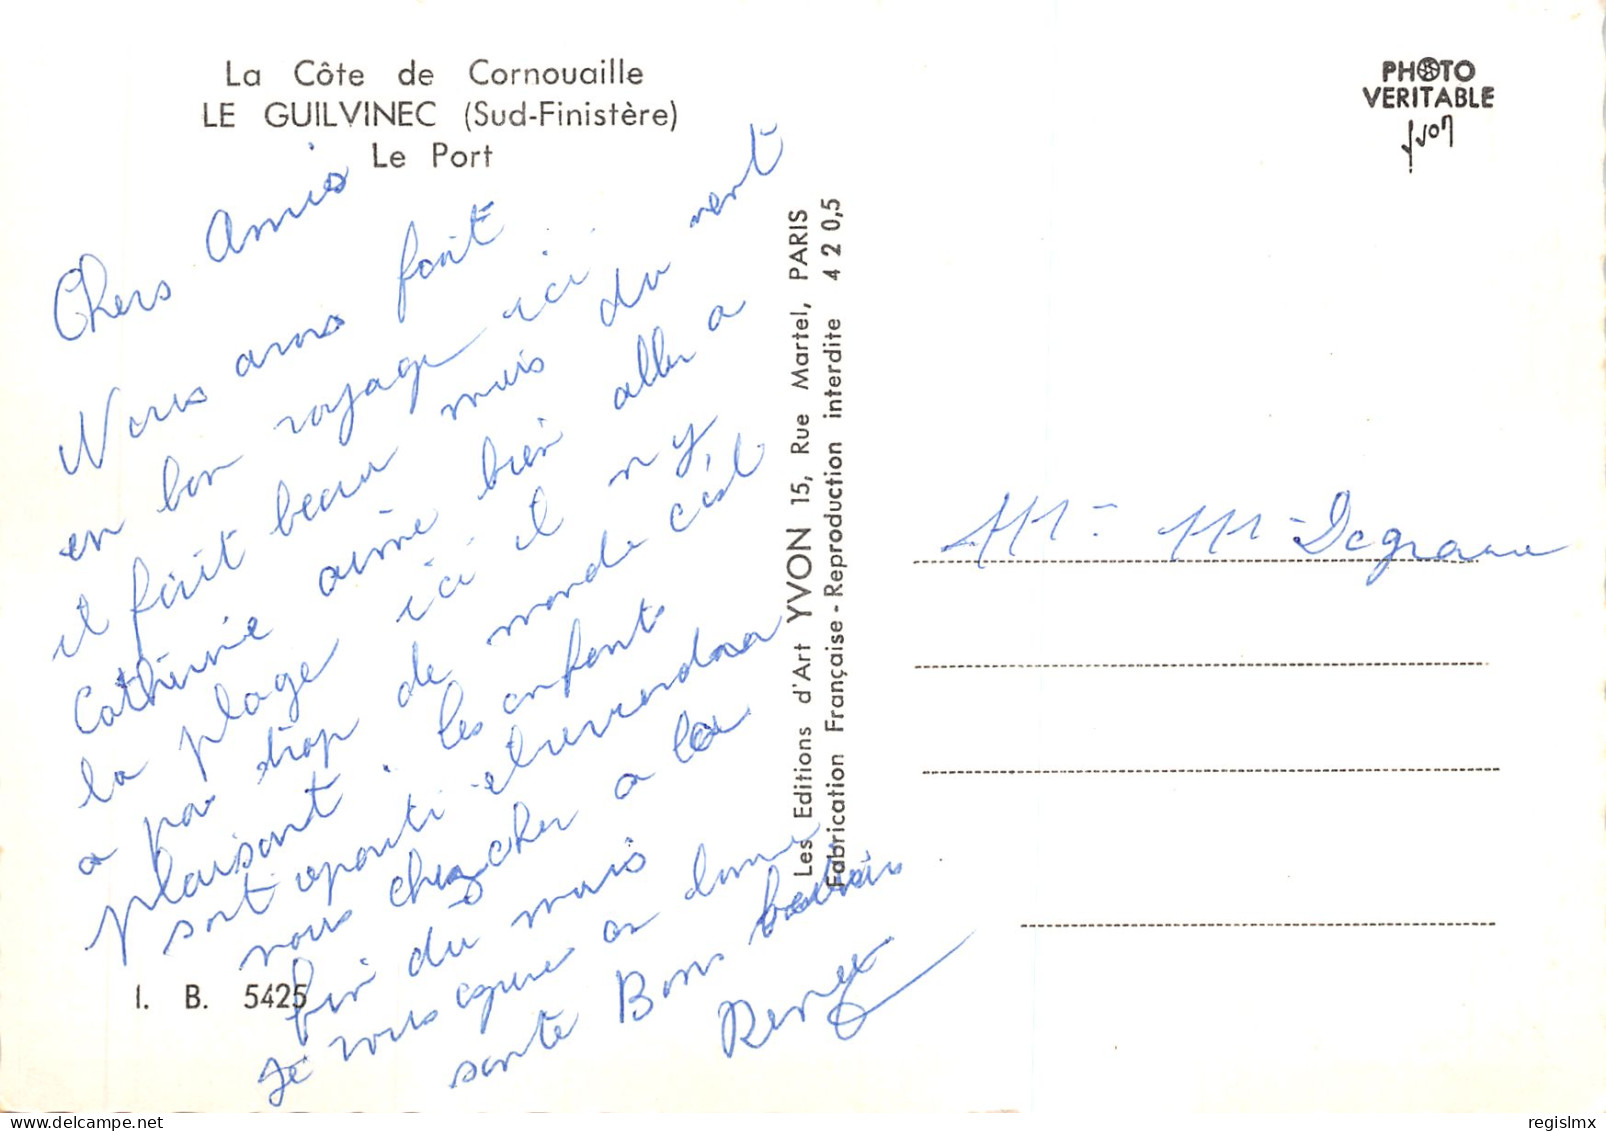 La Côte de Cornouaille
LE GUILVINEC (Sud-Finistère)
Le Port
Chers Amis
Nous avons fait
en bon voyage ici
il fait beau mais du vent
Catherine aime bien aller a
la plage ici il n y,
a pas trop de monde cest
plaisant. les enfants
sont reparti et reviendra
nous chercher a la
fin du mois
Je vous espère en bonne
sante Bons baisers
Reny
I. B. 5425
Les Editions d'Art YVON 15, Rue Martel, PARIS
Fabrication Française - Reproduction interdite 4 2 0,5
PHOTO
VERITABLE
yvon
Mr Mme
regislmx